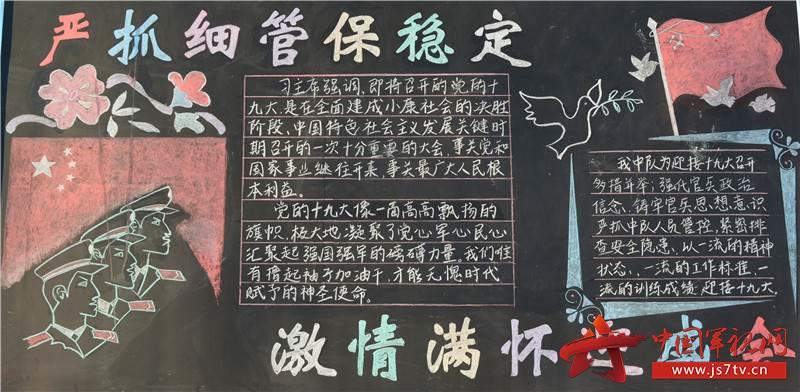 严抓细管保稳定
习主席强调,即将召开的党的十
九大,是在全面建成小康社会的决胜
阶段、中国特色社会主义发展关键时
期召开的一次十分重要的大会,事关党和
国家事业继往开来,事关最广大人民根
本利益。
党的十九大像一面高高飘扬的
旗帜,极大地凝聚了党心军心民心
汇聚起强国强军的磅礴力量。我们唯
有撸起袖子加油干,才能无愧时代
赋予的神圣使命。
我中队为迎接十九大召开
多措并举:强化官兵政治
信念、铸牢官兵思想意识
严抓中队人员管控,紧密排
查安全隐患,以一流的精神
状态、一流的工作标准、一
流的训练成绩迎接十九大.
激情满怀迎盛会
中国军视网
www.js7tv.cn